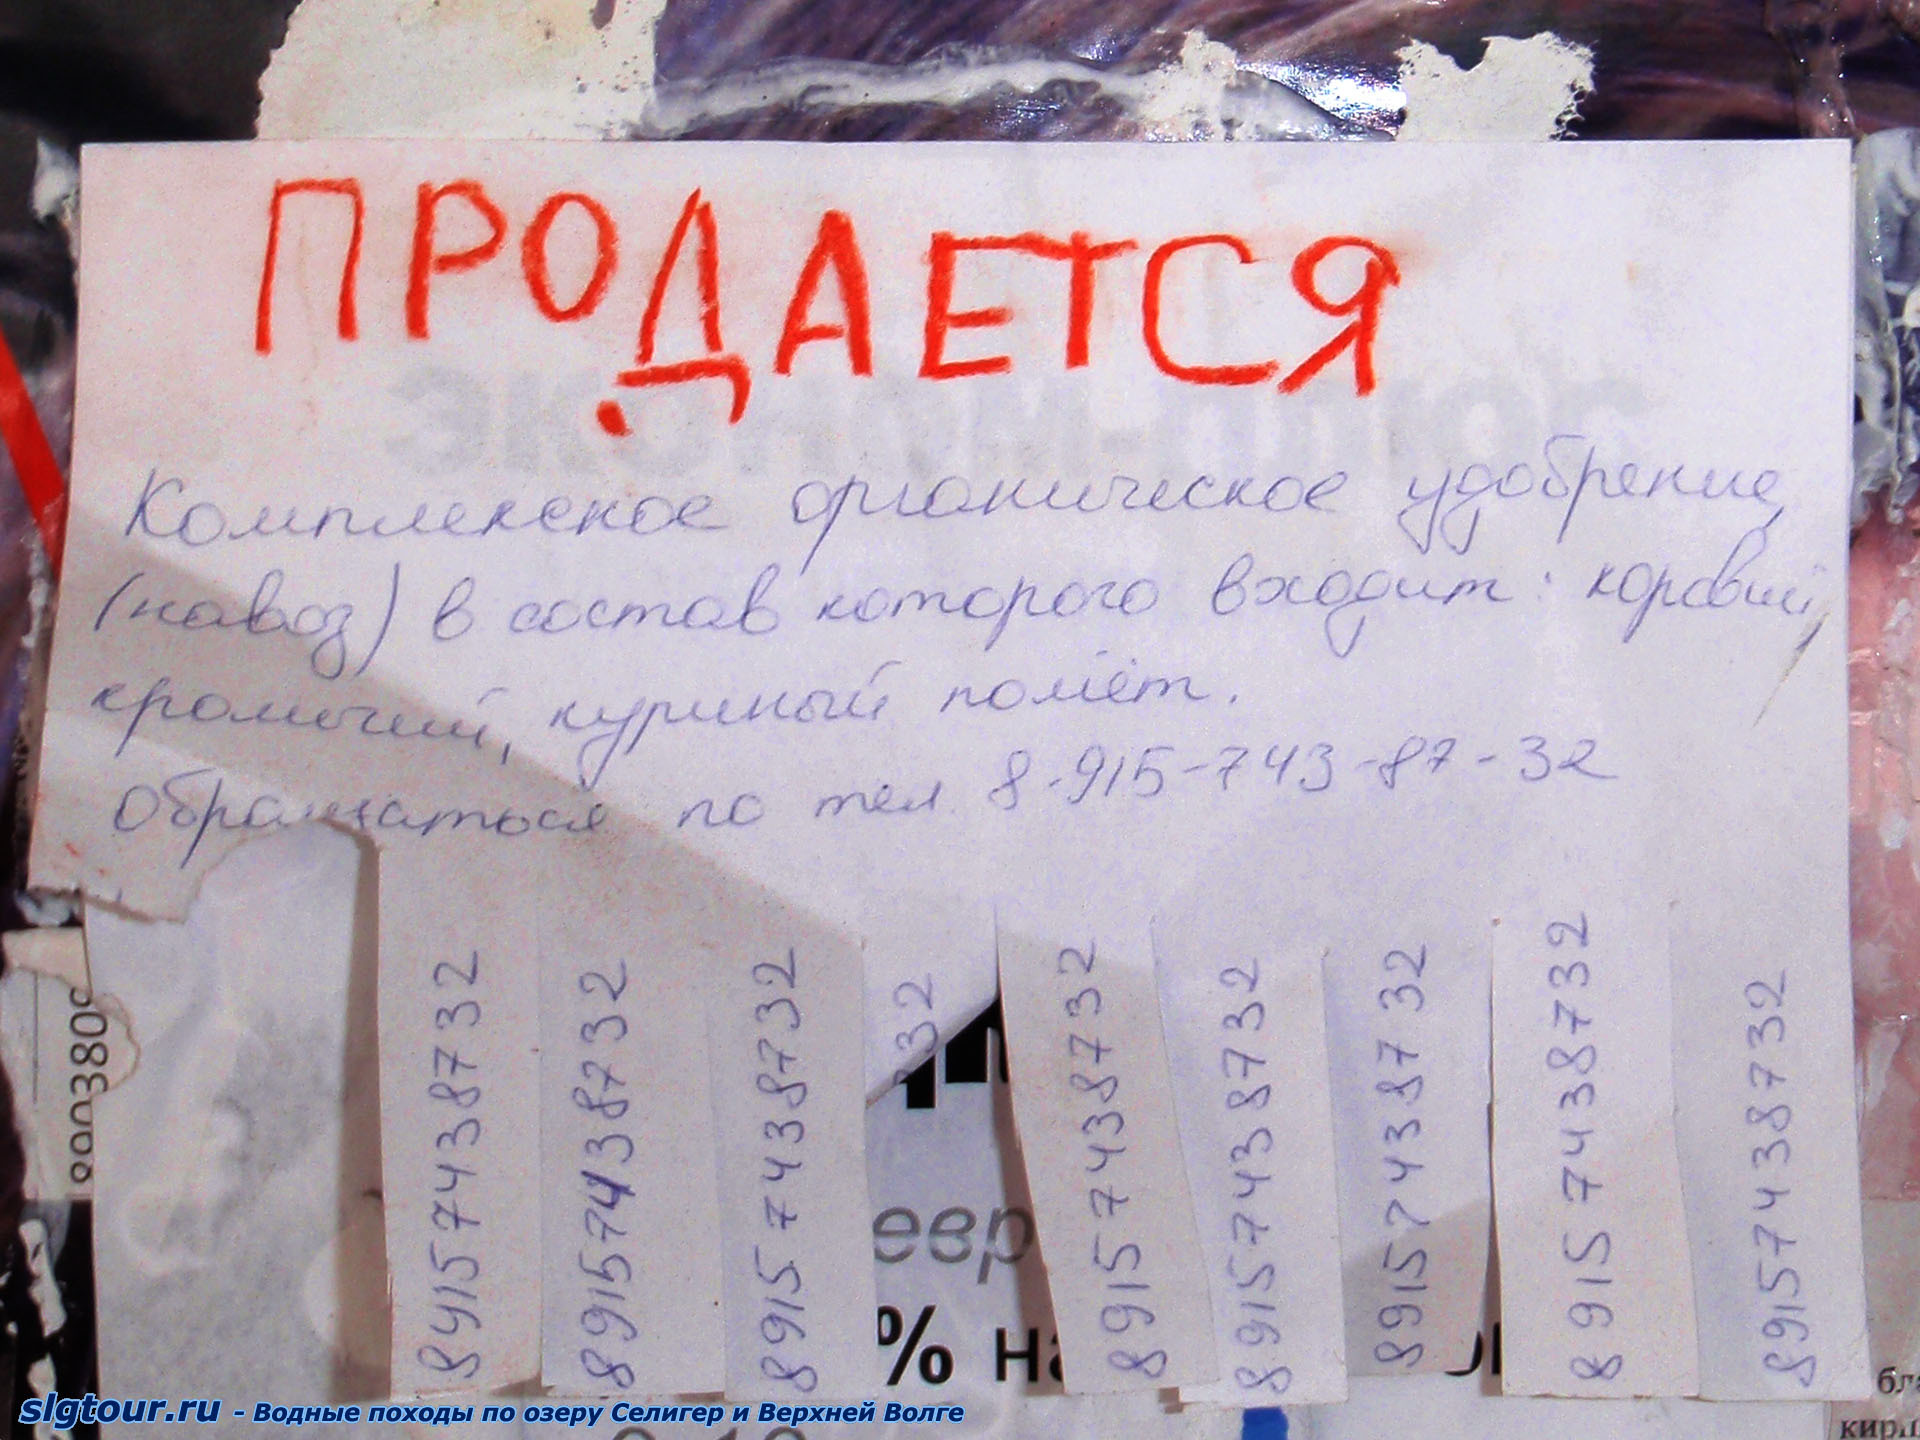 ПРОДАЕТСЯ
Комплексное органическое удобрение,
(навоз) в состав которого входит: коровий,
кроличий, куриный помёт.
Обращаться по тел 8-915-743-87-32
89157438732
89157438732
89157438732
32
89157438732
89157438732
89157438732
89157438732
89157438732
евр
% на
slgtour.ru - Водные походы по озеру Селигер и Верхней Волге